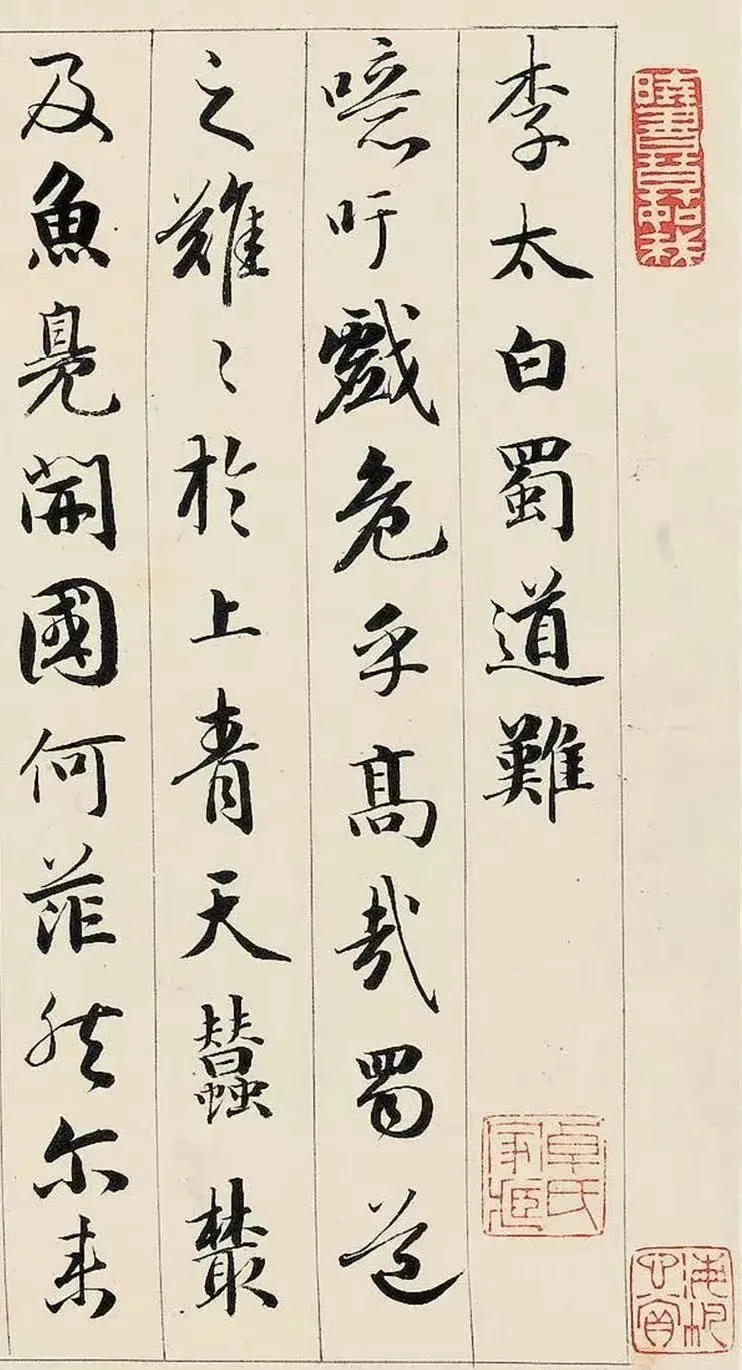 李太白蜀道難
卓氏家藏
噫吁戲危乎髙哉蜀道
之難〻於上青天蠶叢
及魚鳧開國何茫然尔来